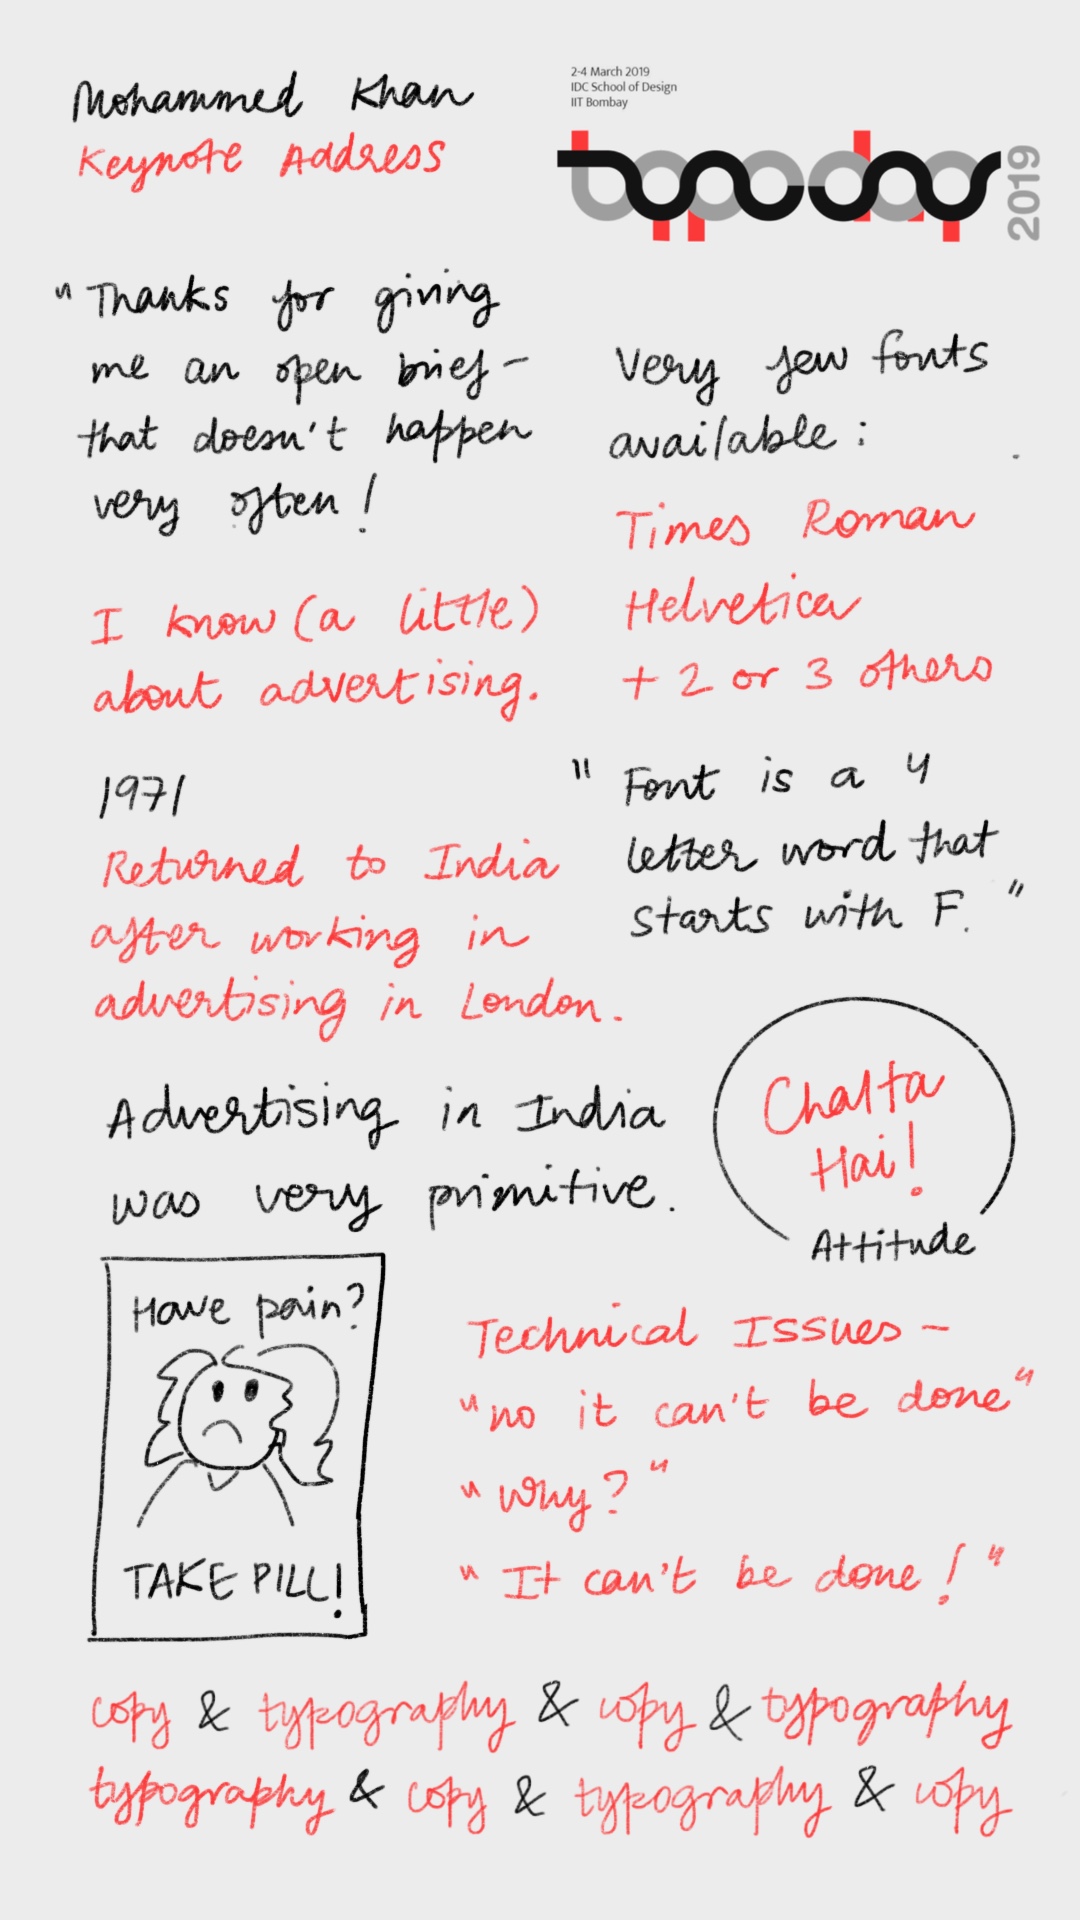 Mohammed Khan
Keynote Address
2-4 March 2019
IDC School of Design
IIT Bombay
typoday
2019
"Thanks for giving
me an open brief –
that doesn't happen
very often!
I know (a little)
about advertising.
1971
Returned to India
after working in
advertising in London.
Advertising in India
was very primitive.
Very few fonts
available:
Times Roman
Helvetica
+ 2 or 3 others
"Font is a 4
letter word that
starts with F."
Chalta
Hai!
Attitude
Have pain?
TAKE PILL!
Technical Issues –
"no it can't be done"
"why?"
"It can't be done!"
copy & typography & copy & typography
typography & copy & typography & copy